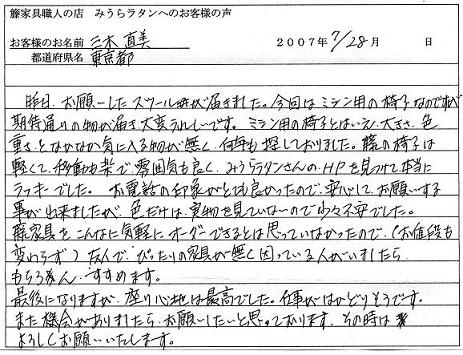 籐家具職人の店 みうらラタンへのお客様の声
お客様のお名前 三木 直美 2007年 7/28月 日
都道府県名 東京都
昨日、お願いしたスツールが届きました。今回はミシン用の椅子なのですが
期待通りの物が届き大変うれしいです。ミシン用の椅子とはいえ、大きさ、色
重さとなかなか気に入る物が無く、何年も探しておりました。籐の椅子は
軽くて、移動も楽で雰囲気も良く、みうらラタンさんのHPを見つけて本当に
ラッキーでした。 お電話の印象がとても良かったので、安心してお願いする
事が出来ましたが、色だけは、実物を見ていないので少々不安でした。
籐家具をこんなに気軽にオーダーできるとは思っていなかったので、(お値段も
変わらず)なんで、ぴったりの家具が無く困っている人がいましたら
もちろん、すすめます。
最後になりますが、座り心地は最高でした。仕事がはかどりそうです。
また機会がありましたら、お願いしたいと思っております。その時は
よろしくお願いいたします。